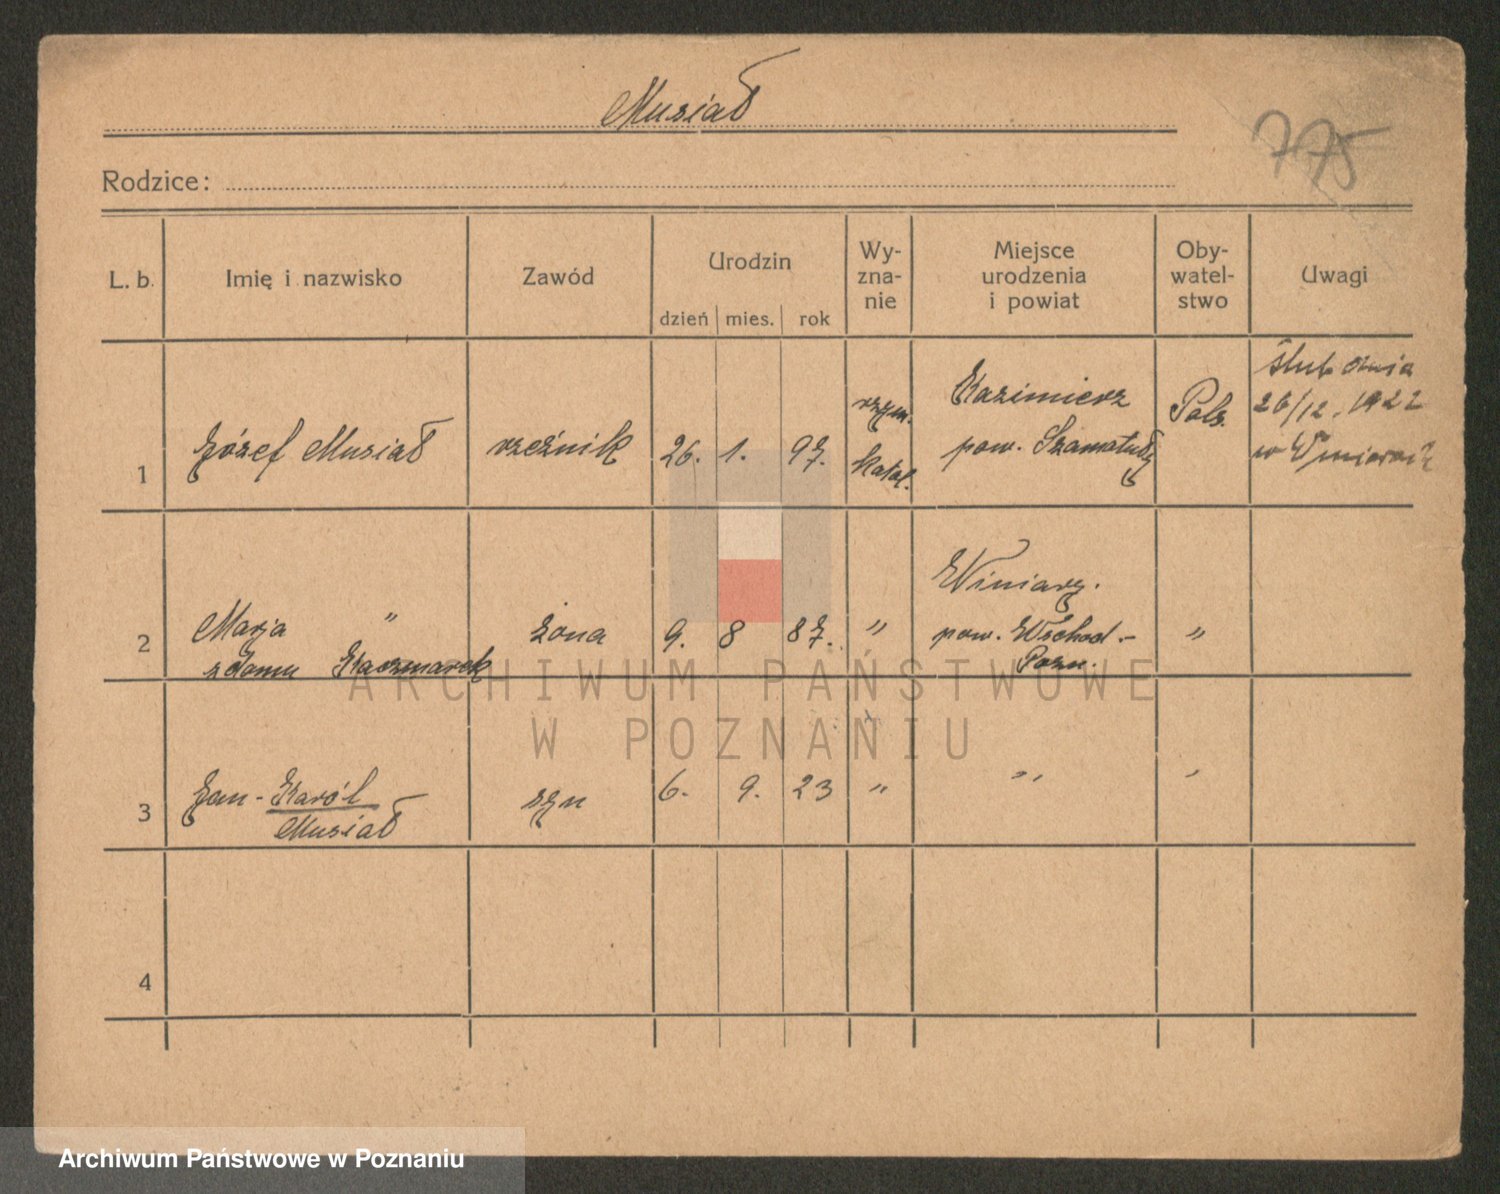 Musiał
775
Rodzice:
L. b. Imię i nazwisko Zawód Urodzin Wy-zna-nie Miejsce urodzenia i powiat Oby-watel-stwo Uwagi
dzień mies. rok
1 Józef Musiał rzeźnik 26. 1. 97. rzym. katol. Kazimierz pow. Szamotuły Pols. Ślub dnia 26/12. 1922 w Winiarach
2 Marja " żona 9. 8 87. " Winiary. pow. Wschod.- Pozn. "
z domu Kaczmarek
3 Jan-Karól syn 6. 9. 23 " " "
Musiał
4
ARCHIWUM PAŃSTWOWE
W POZNANIU
Archiwum Państwowe w Poznaniu